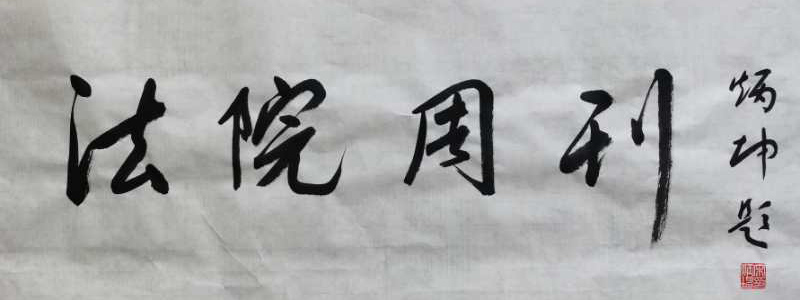 法院周刊
炳坤题